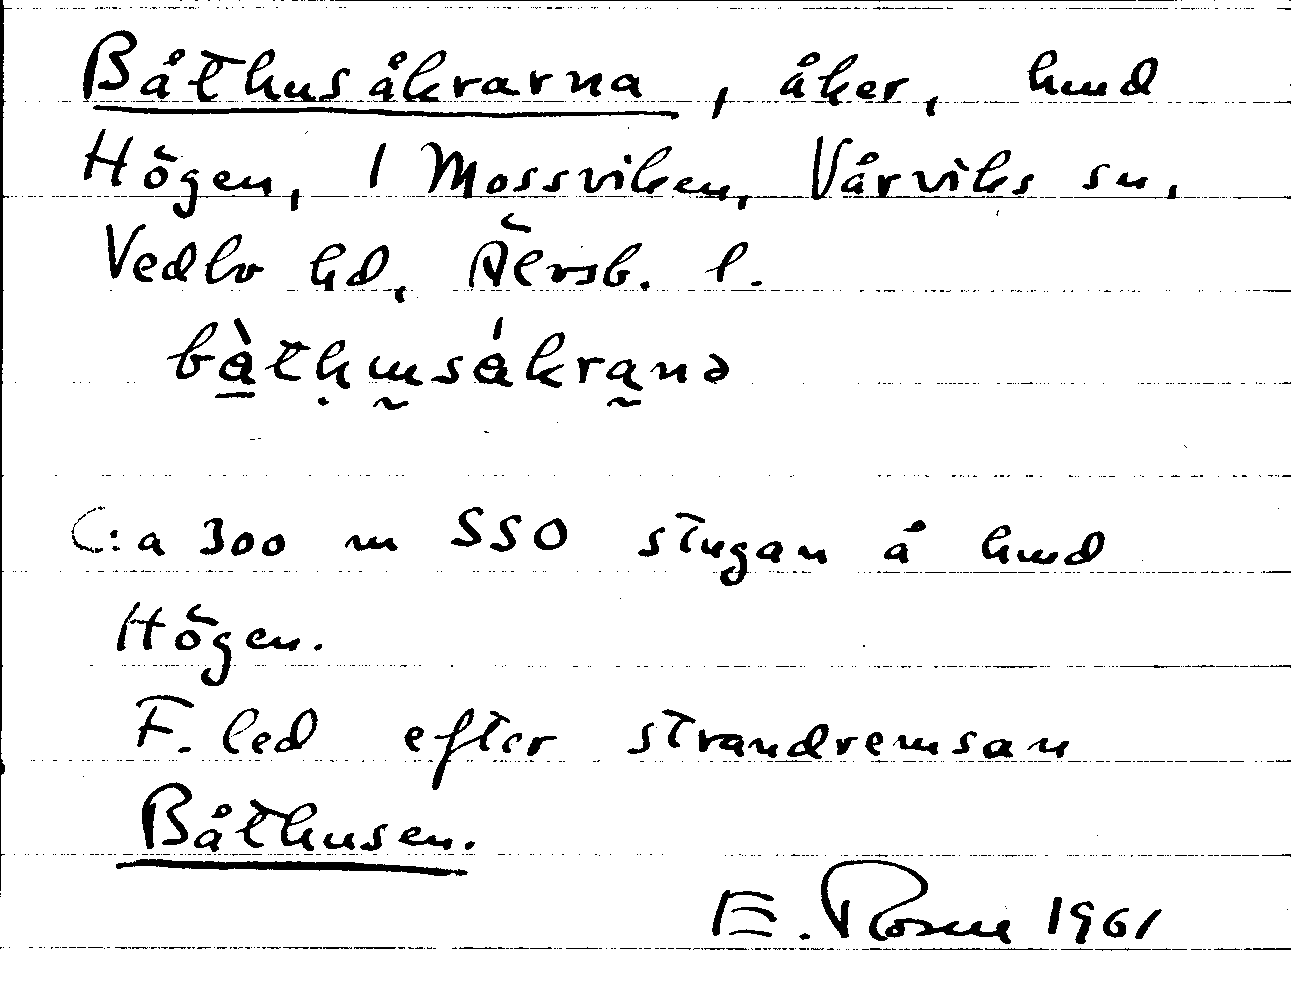 Båthusåkrarna, åker, hmd
Högen, 1 Mossviken, Vårviks sn,
Vedbo hd, Älvsb. l.
C:a 300 m SSO stugan å hmd
Högen.
F. led efter strandremsan
Båthusen.
E. Rosm 1961